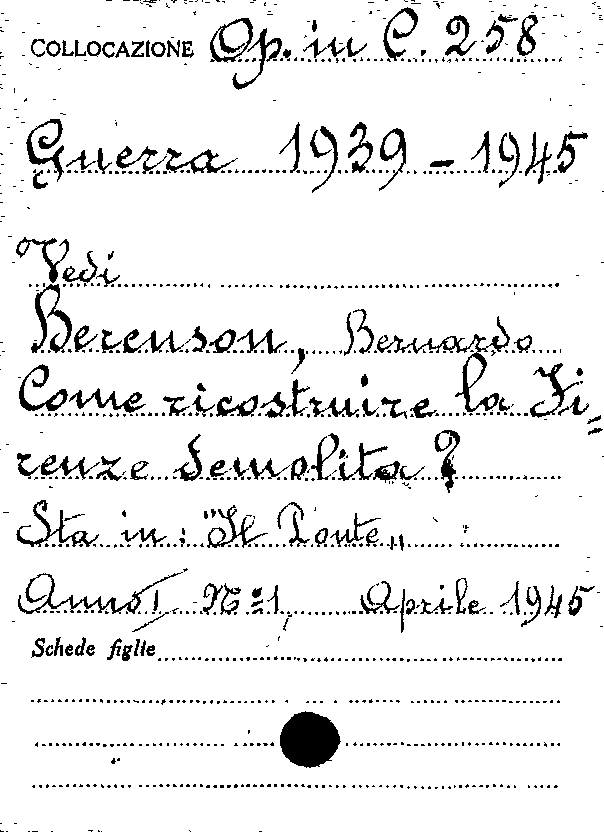 COLLOCAZIONE Op. in C. 258
Guerra 1939 - 1945
Vedi
Berenson, Bernardo
Come ricostruire la Fi=
renze demolita?
Sta in: "Il Ponte„
Anno I N° 1 Aprile 1945
Schede figlie